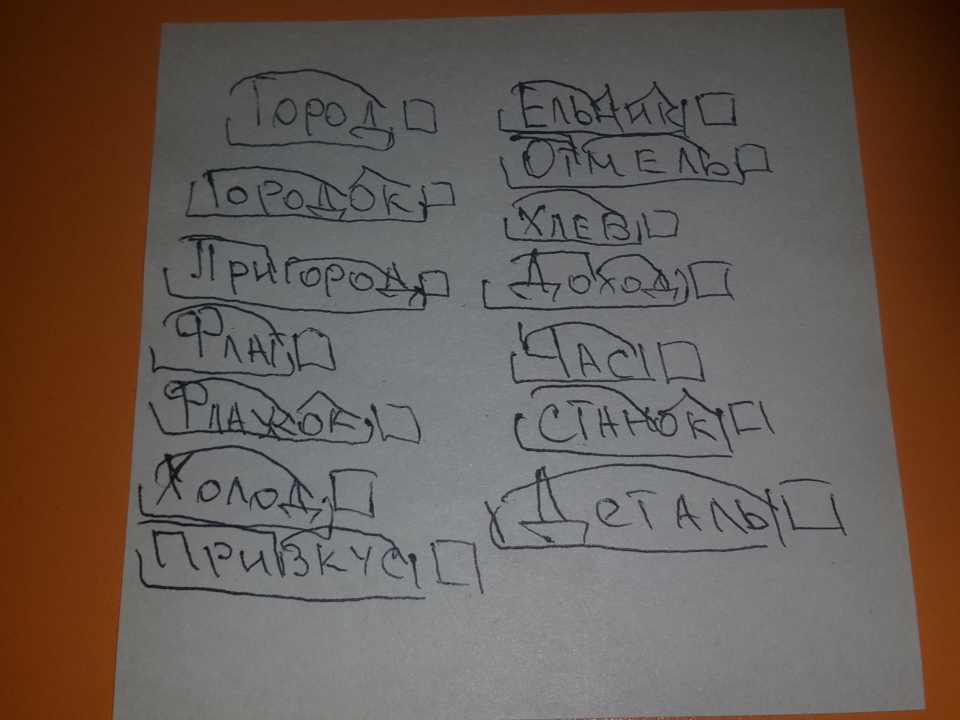 Город
Городок
Пригород
Флаг
Флажок
Холод
Призкус
Ельник
Отмель
Хлев
Доход
Час
Станок
Деталь